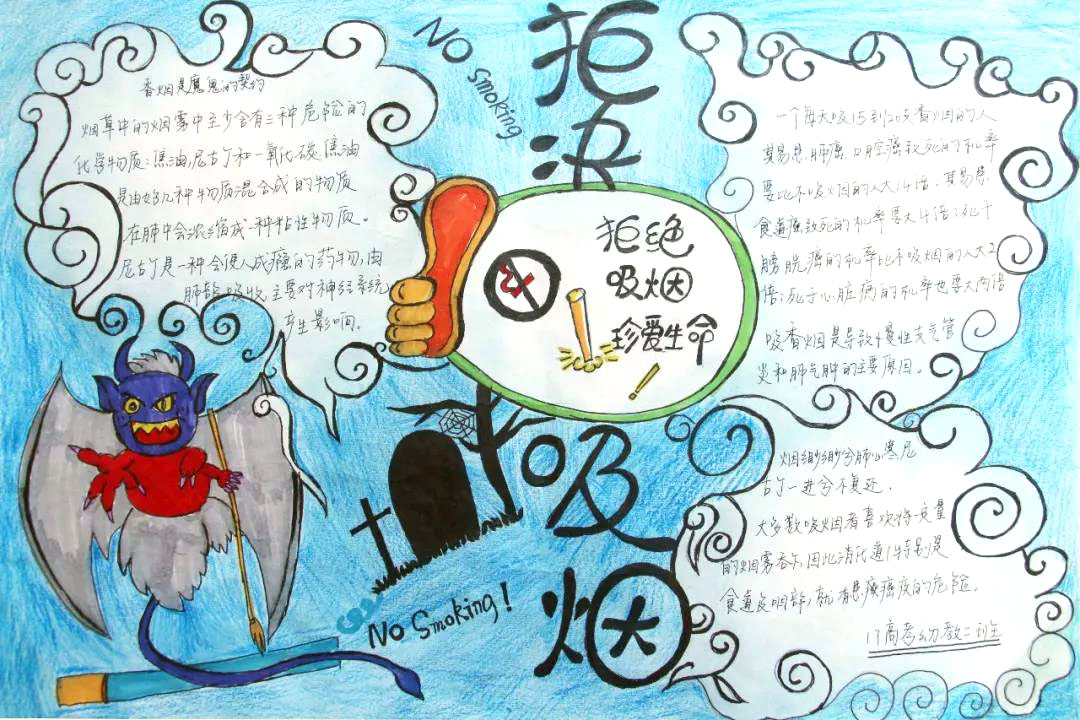 香烟是魔鬼的契约
烟草中的烟雾中至少含有三种危险的
化学物质:焦油,尼古丁和一氧化碳,焦油
是由好几种物质混合成的物质
在肺中会浓缩成一种粘性物质。
尼古丁是一种会使人成瘾的药物,由
肺部吸收,主要对神经系统
产生影响。
No smoking
拒
决
吸
烟
拒绝
吸烟
珍爱生命
No Smoking!
一个每天吸15到20支香烟的人
其易患肺癌,口腔癌致死的机率
要比不吸烟的人大14倍,其易患
食道癌致死的机率要大4倍;死于
膀胱癌的机率比不吸烟的人大2
倍;死于心脏病的机率也要大两倍
吸香烟是导致慢性支气管
炎和肺气肿的主要原因。
烟缈缈兮肺心寒尼
古丁一进兮不复还.
大多数吸烟者喜欢将一定量
的烟雾吞下,因此消化道(特别是
食道及咽部)就有患癌疾的危险。
17高考幼教二班